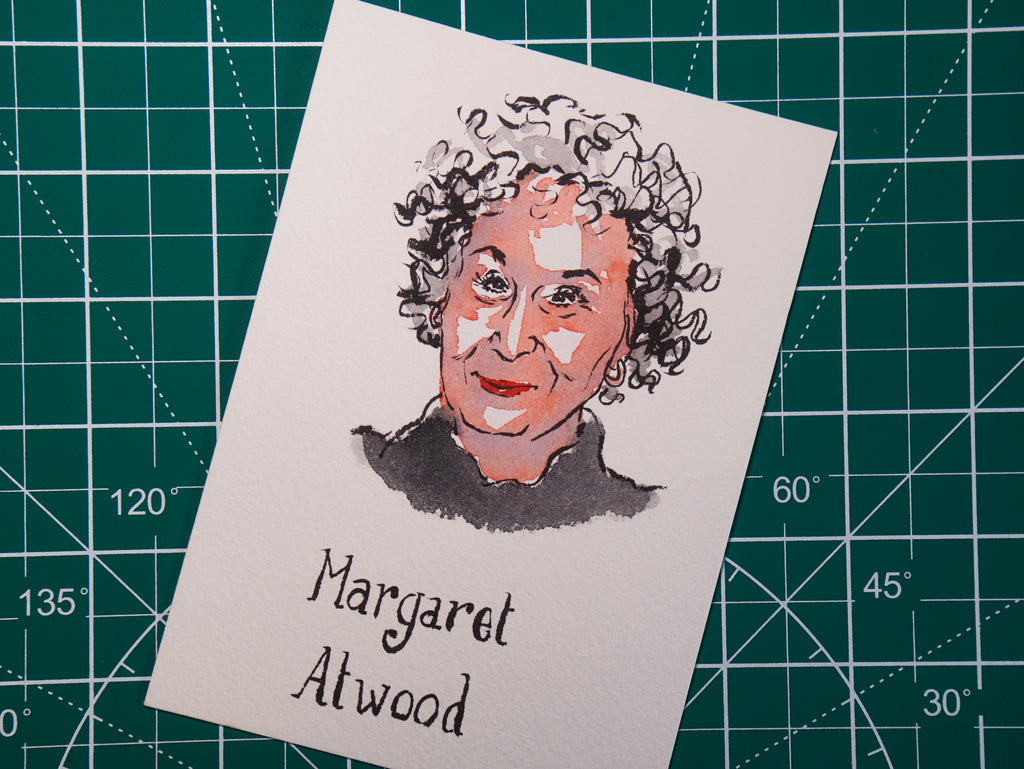 120°
60°
135°
45°
30°
0°
Margaret
Atwood